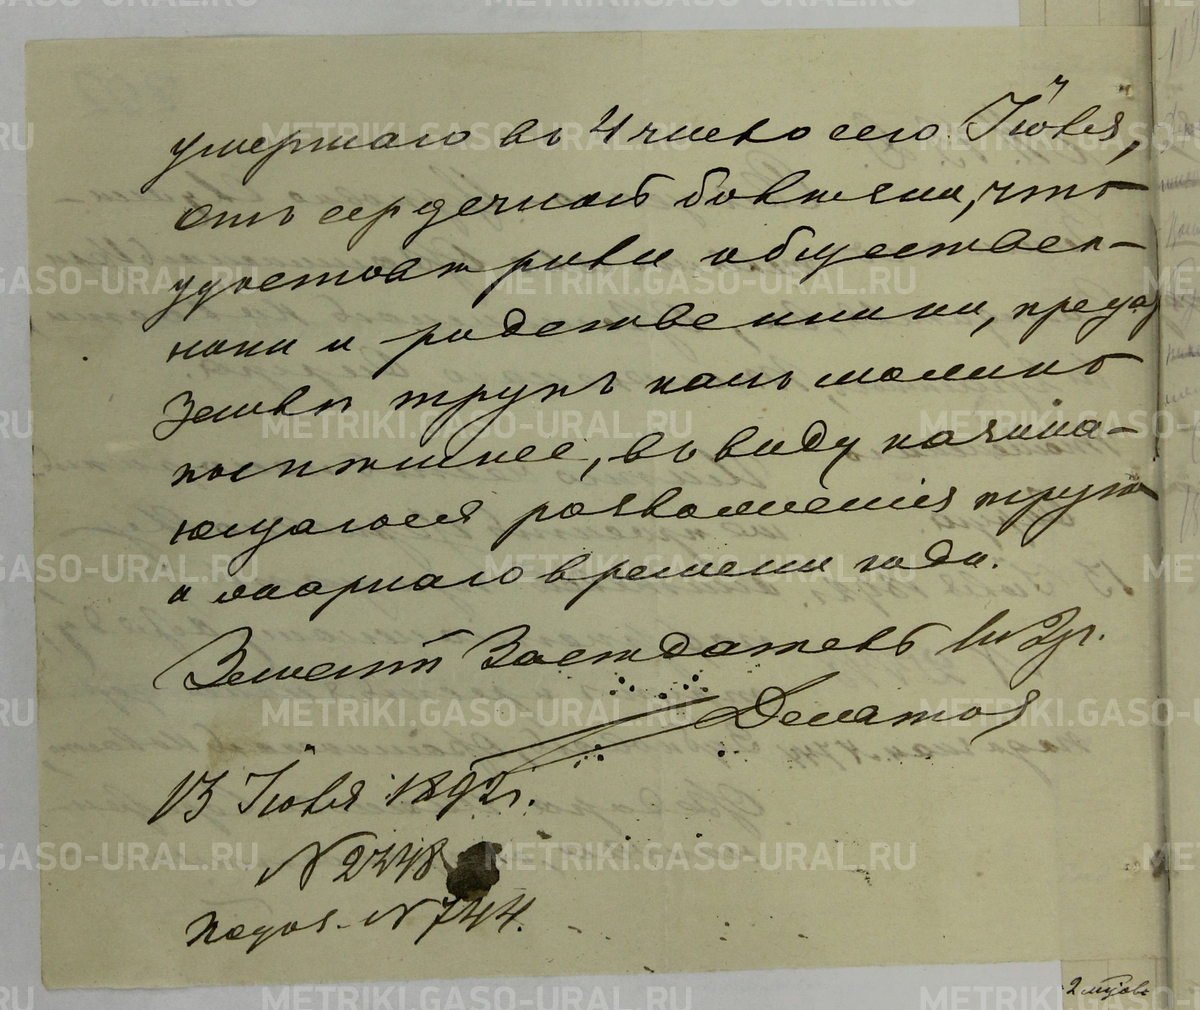 умершаго въ 4 число сего Іюля,
отъ сердечной болѣзни, что
удостовѣрили обществен-
ники и родственники, предать
Землѣ трупъ какъ можно
поспѣшнее, въ виду начина-
ющагося разложенія трупа
и жаркаго времени года.
Земскій Засѣдатель
13 Іюля 1892 г.
№ 2748
№ 744.
METRIKI.GASO-URAL.RU